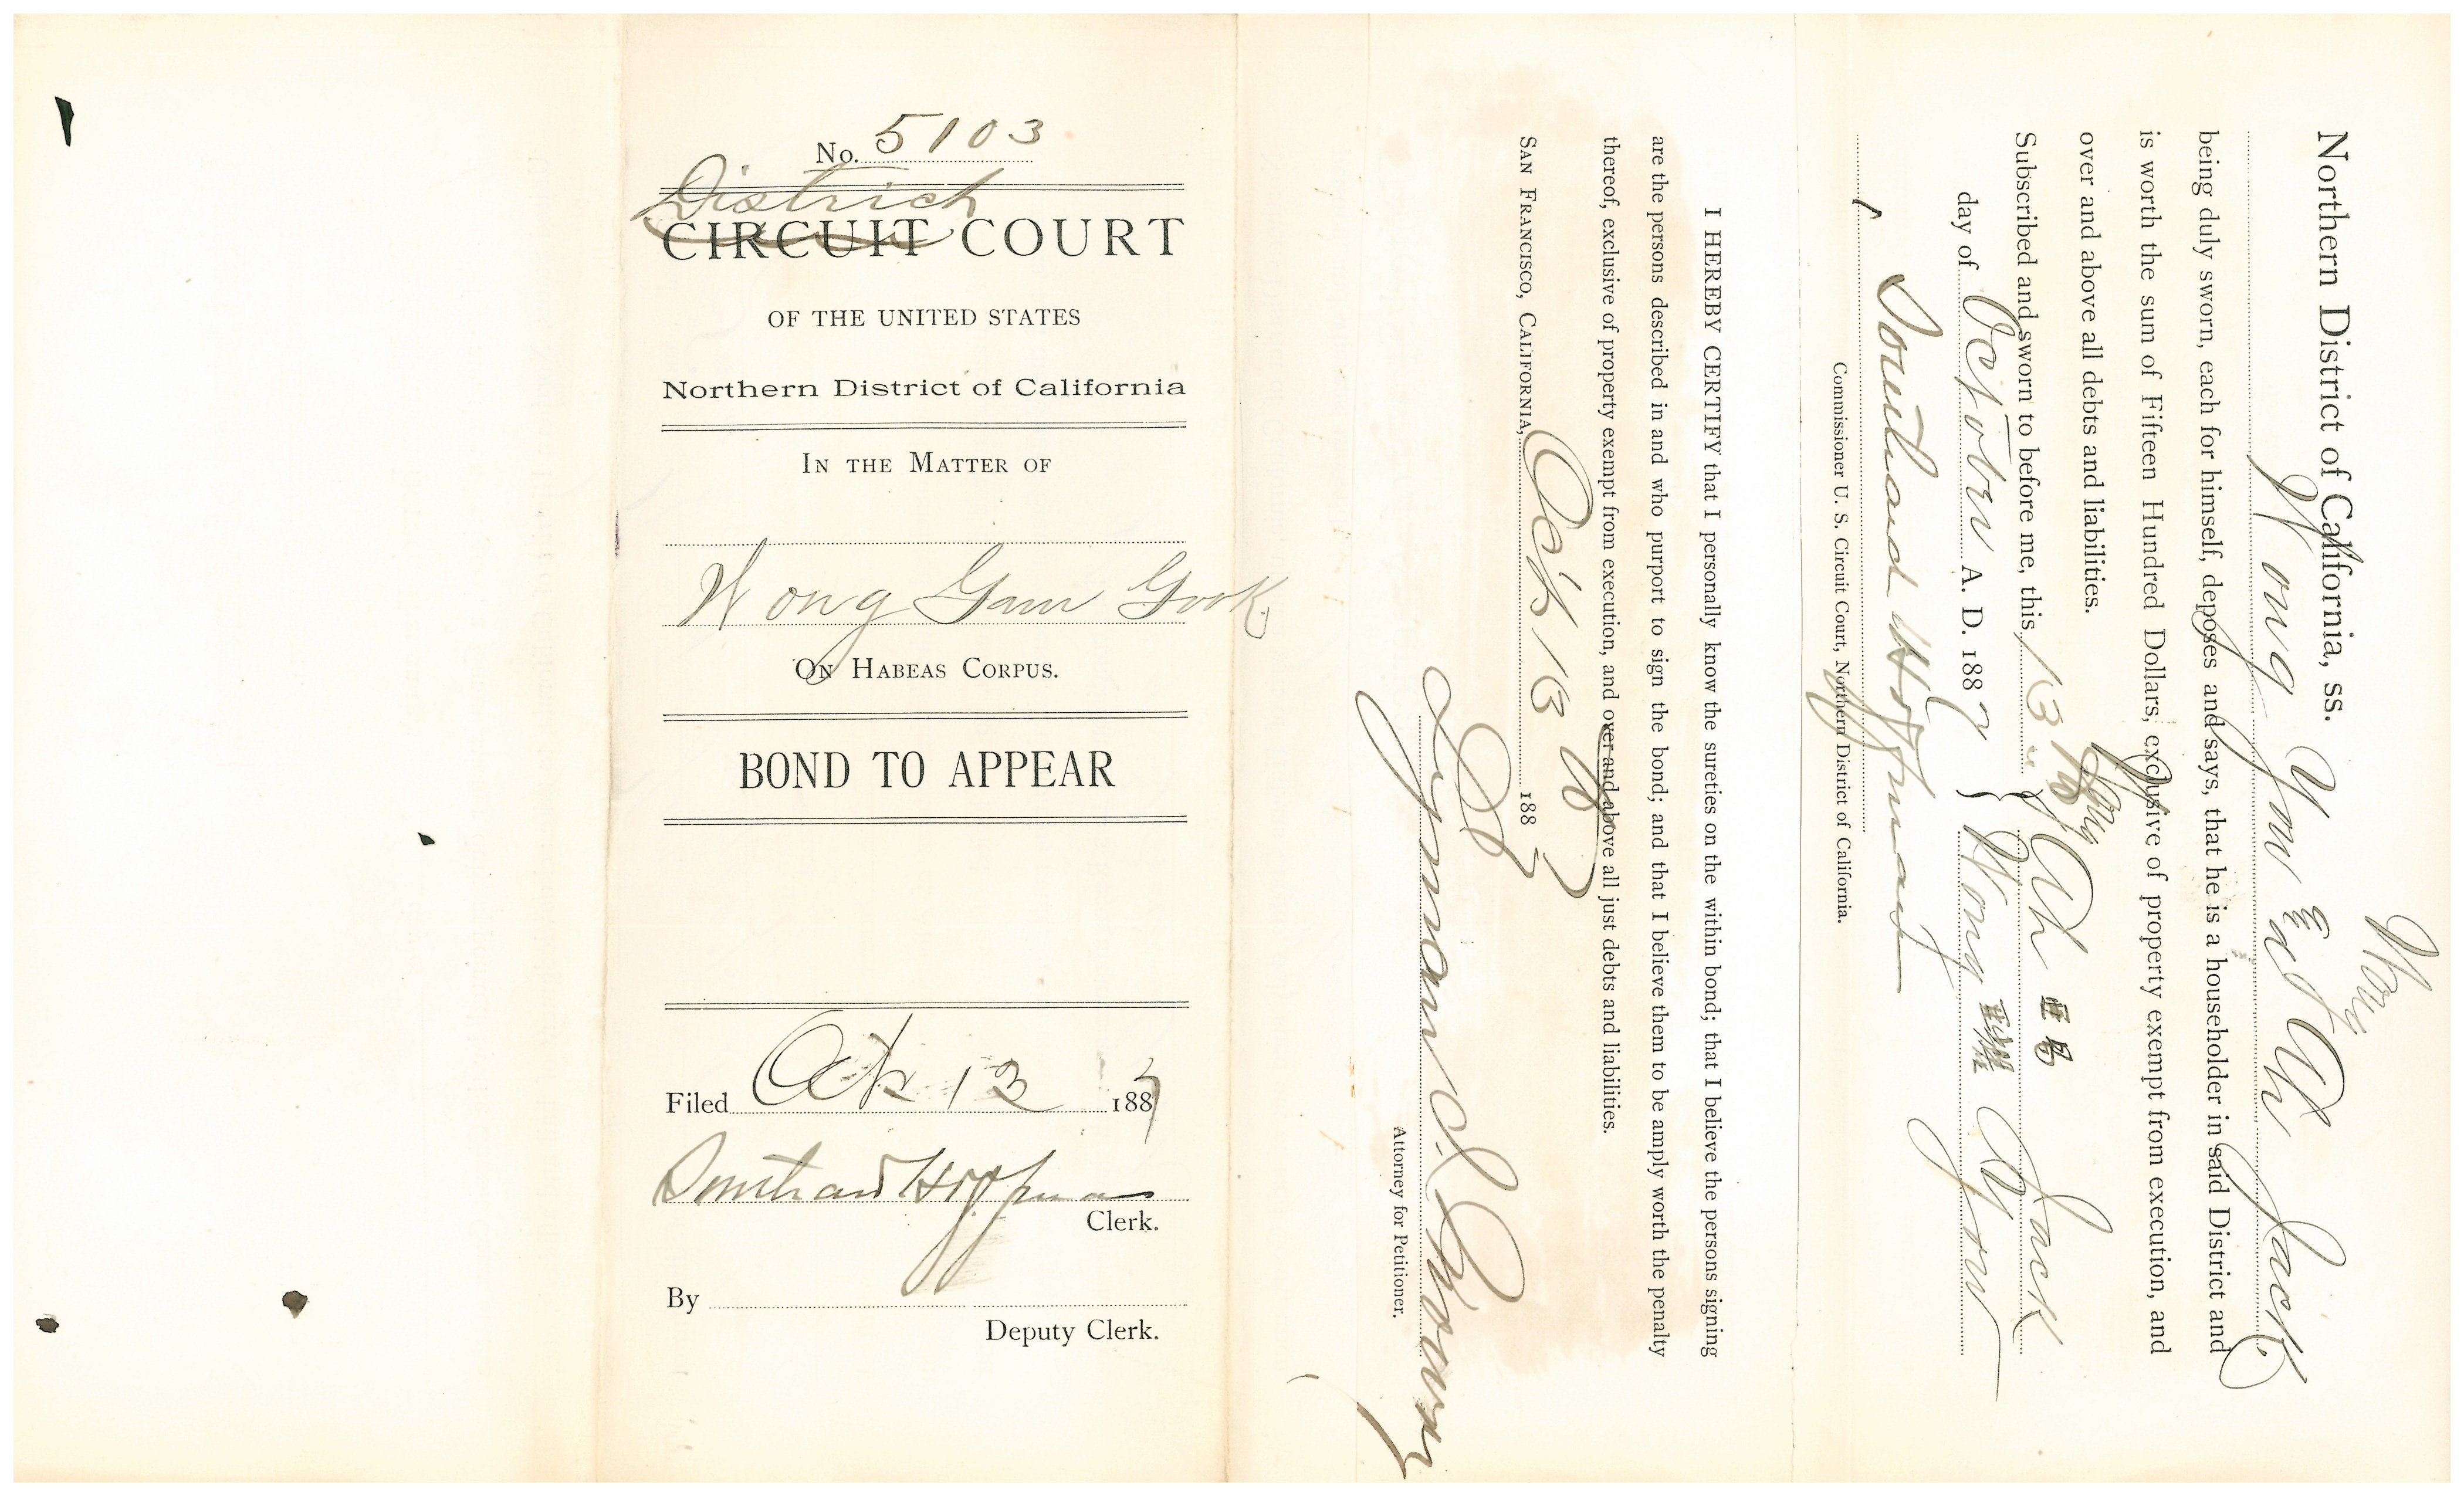 No. 5103
District
CIRCUIT COURT
OF THE UNITED STATES
Northern District of California
IN THE MATTER OF
Wong Gam Gook
ON HABEAS CORPUS.
BOND TO APPEAR
Filed Oct 13 1887
Southard Hoffman
Clerk.
By
Deputy Clerk.
Northern District of California, ss.
Wong
Wong Yow and Ah Jack
being duly sworn, each for himself, deposes and says, that he is a householder in said District and
is worth the sum of Fifteen Hundred Dollars, exclusive of property exempt from execution, and
over and above all debts and liabilities.
Subscribed and sworn to before me, this 13
day of October A. D. 1887
Wong
Ah Jack
Wong Yow
Southard Hoffman
Commissioner U. S. Circuit Court, Northern District of California.
I HEREBY CERTIFY that I personally know the sureties on the within bond; that I believe the persons signing
are the persons described in and who purport to sign the bond; and that I believe them to be amply worth the penalty
thereof, exclusive of property exempt from execution, and over and above all just debts and liabilities.
SAN FRANCISCO, CALIFORNIA, Oct 13 1887
Lyman I. Mowry
Attorney for Petitioner.